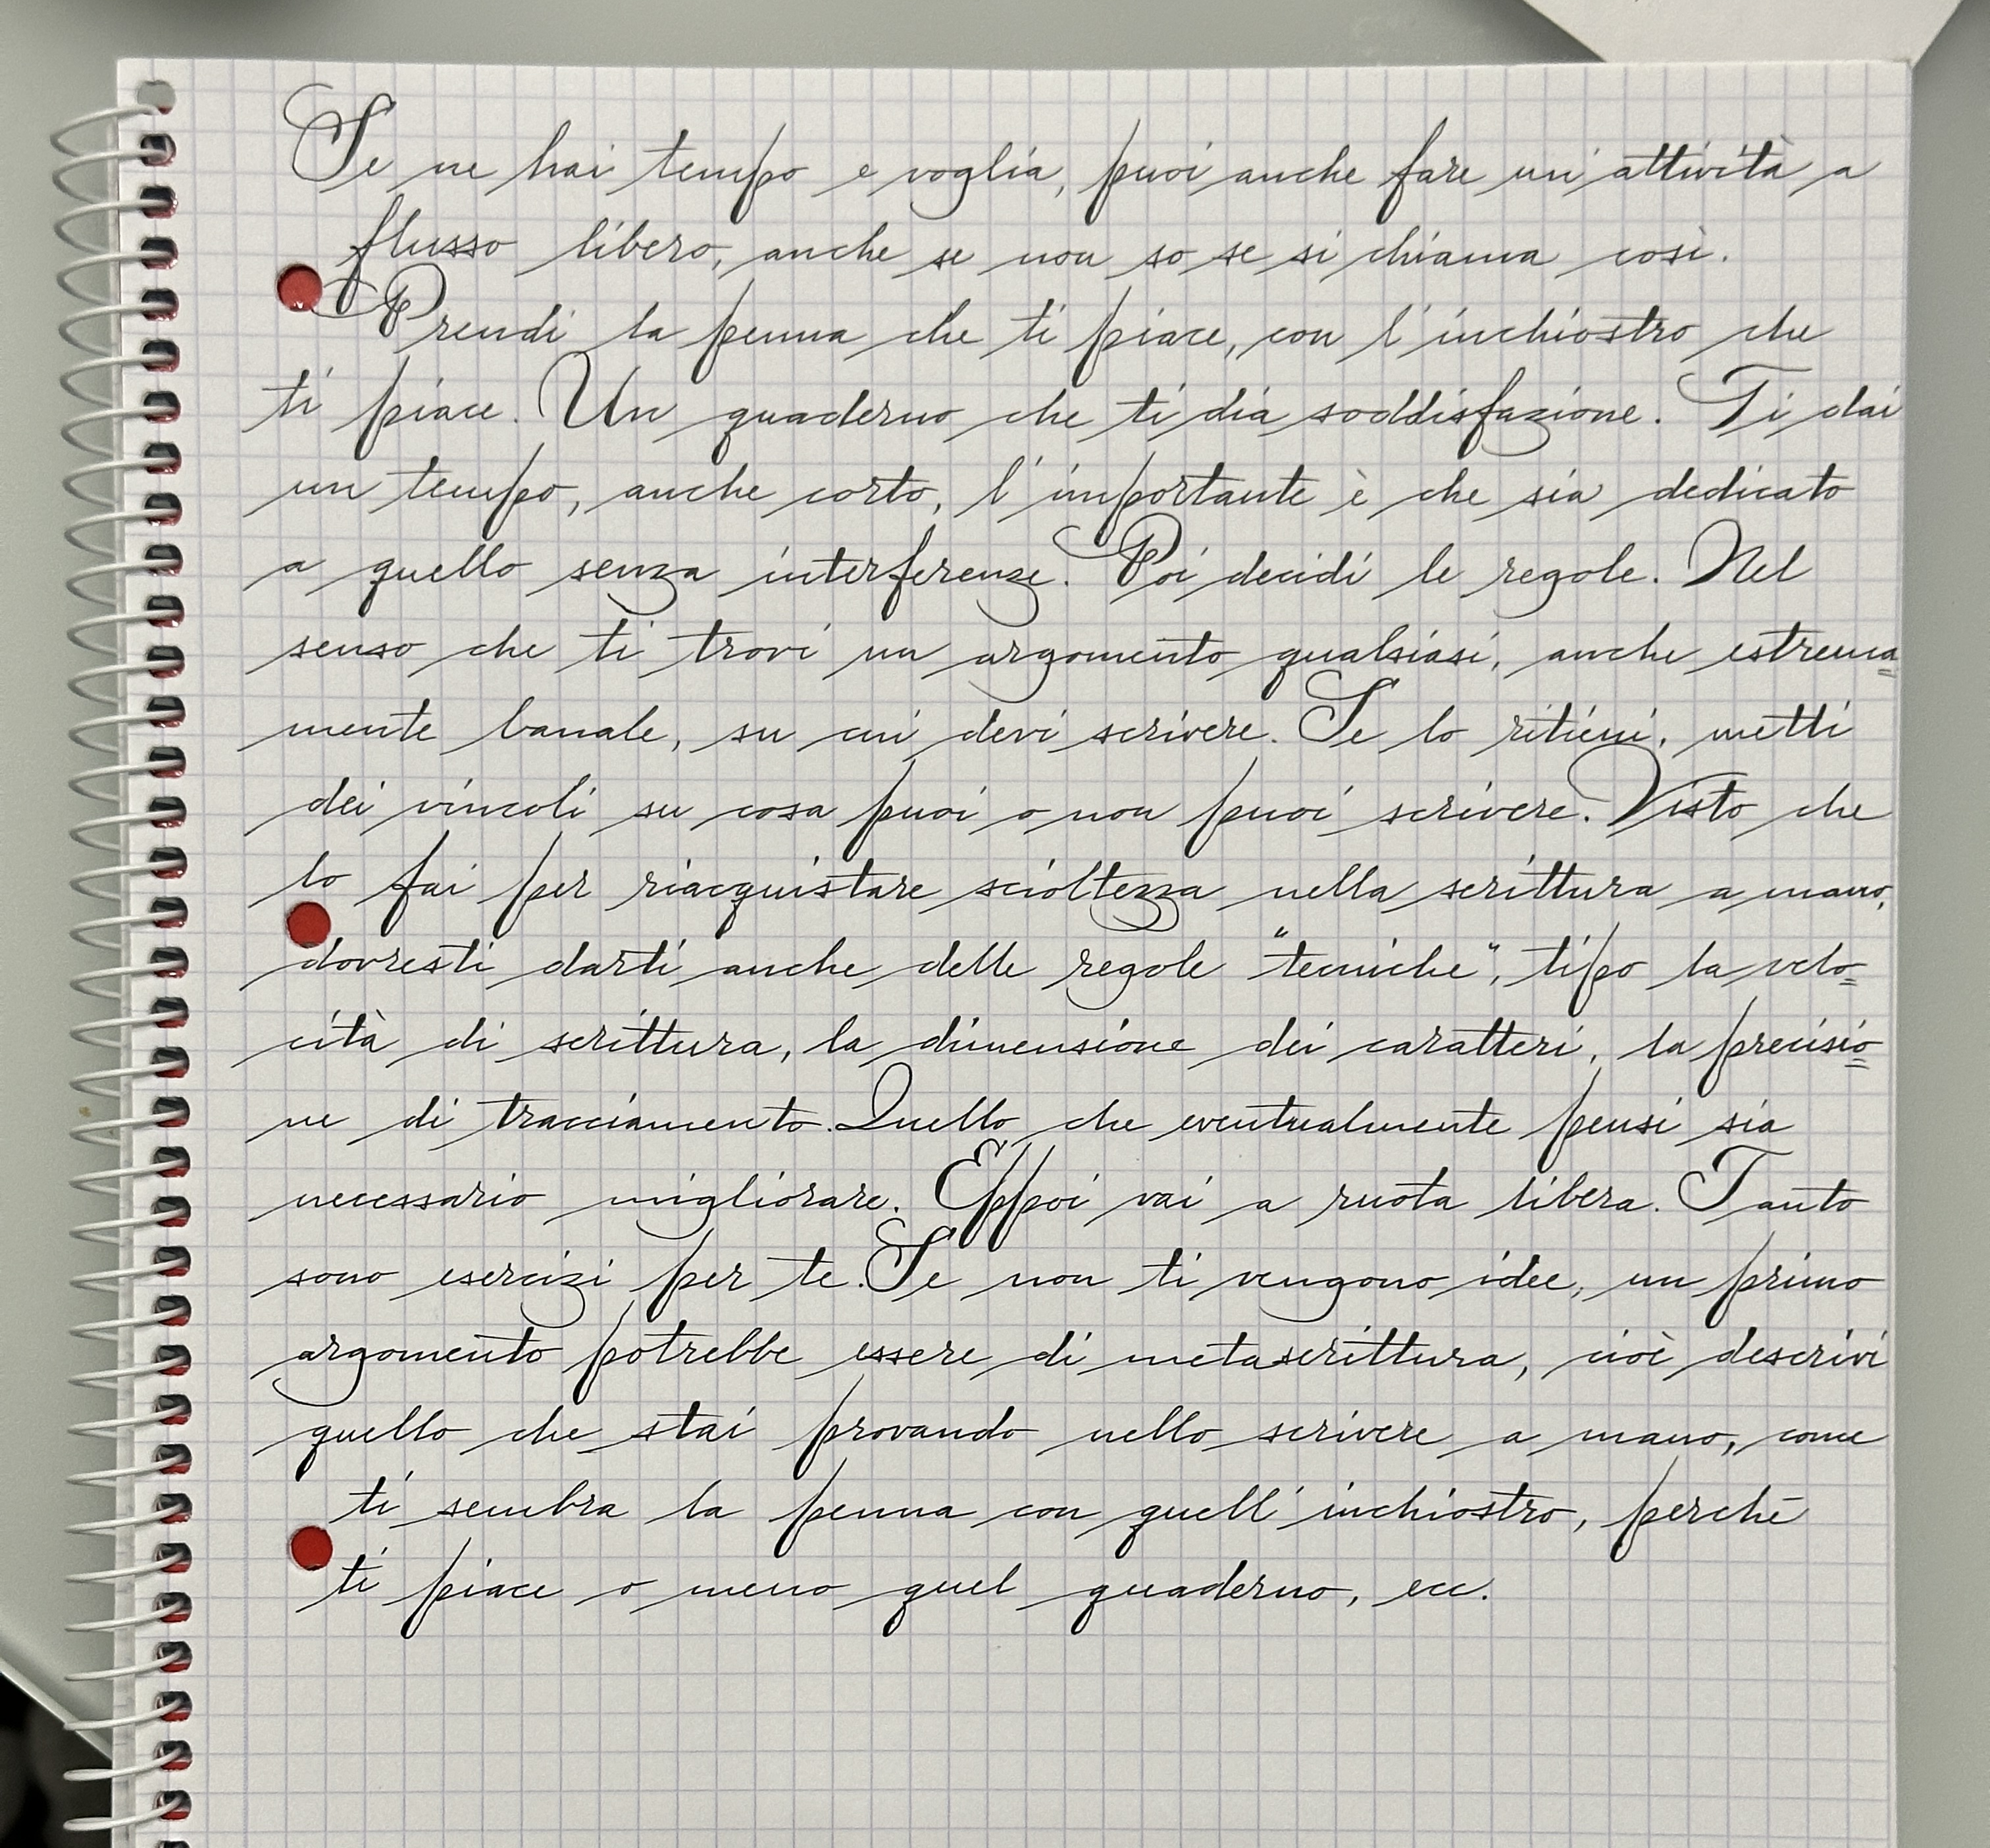 Se ne hai tempo e voglia, puoi anche fare un'attività a
flusso libero, anche se non so se si chiama così.
Prendi la penna che ti piace, con l'inchiostro che
ti piace. Un quaderno che ti dia soddisfazione. Ti dai
un tempo, anche corto, l'importante è che sia dedicato
a quello senza interferenze. Poi decidi le regole. Nel
senso che ti trovi un argomento qualsiasi, anche estrema=
mente banale, su cui devi scrivere. Se lo ritieni, metti
dei vincoli su cosa puoi o non puoi scrivere. Visto che
lo fai per riacquistare scioltezza nella scrittura a mano,
dovresti darti anche delle regole "tecniche", tipo la velo=
cità di scrittura, la dimensione dei caratteri, la precisio=
ne di tracciamento. Quello che eventualmente pensi sia
necessario migliorare. E'ppoi vai a ruota libera. Tanto
sono esercizi per te. Se non ti vengono idee, un primo
argomento potrebbe essere di metascrittura, cioè descrivi
quello che stai provando nello scrivere a mano, come
ti sembra la penna con quell'inchiostro, perché
ti piace o meno quel quaderno, ecc.